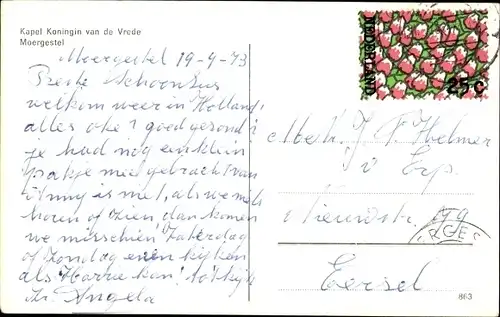 Kapel Koningin van de Vrede
Moergestel
Moergestel 19-4-73
Beste Schoonzus
welkom weer in Holland,
alles oke? goed gezond?
je had nog een klein
pakje mee gebracht van
is met, als we niks
horen of zien dan komen
we misschien Zaterdag
of Zondag even kijken
als Harrie kan! tot kijk
Gr. Angela
NEDERLAND
25c
v Erp.
Nieuwstr. 99
Eersel
863